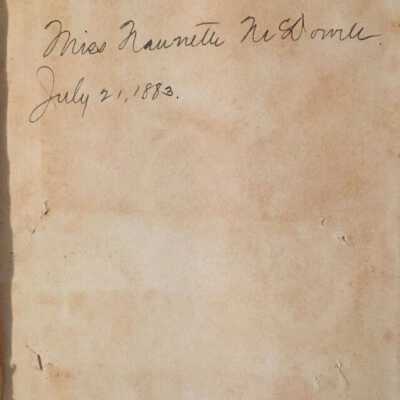 Miss Nannette McDowell.
July 21, 1883.